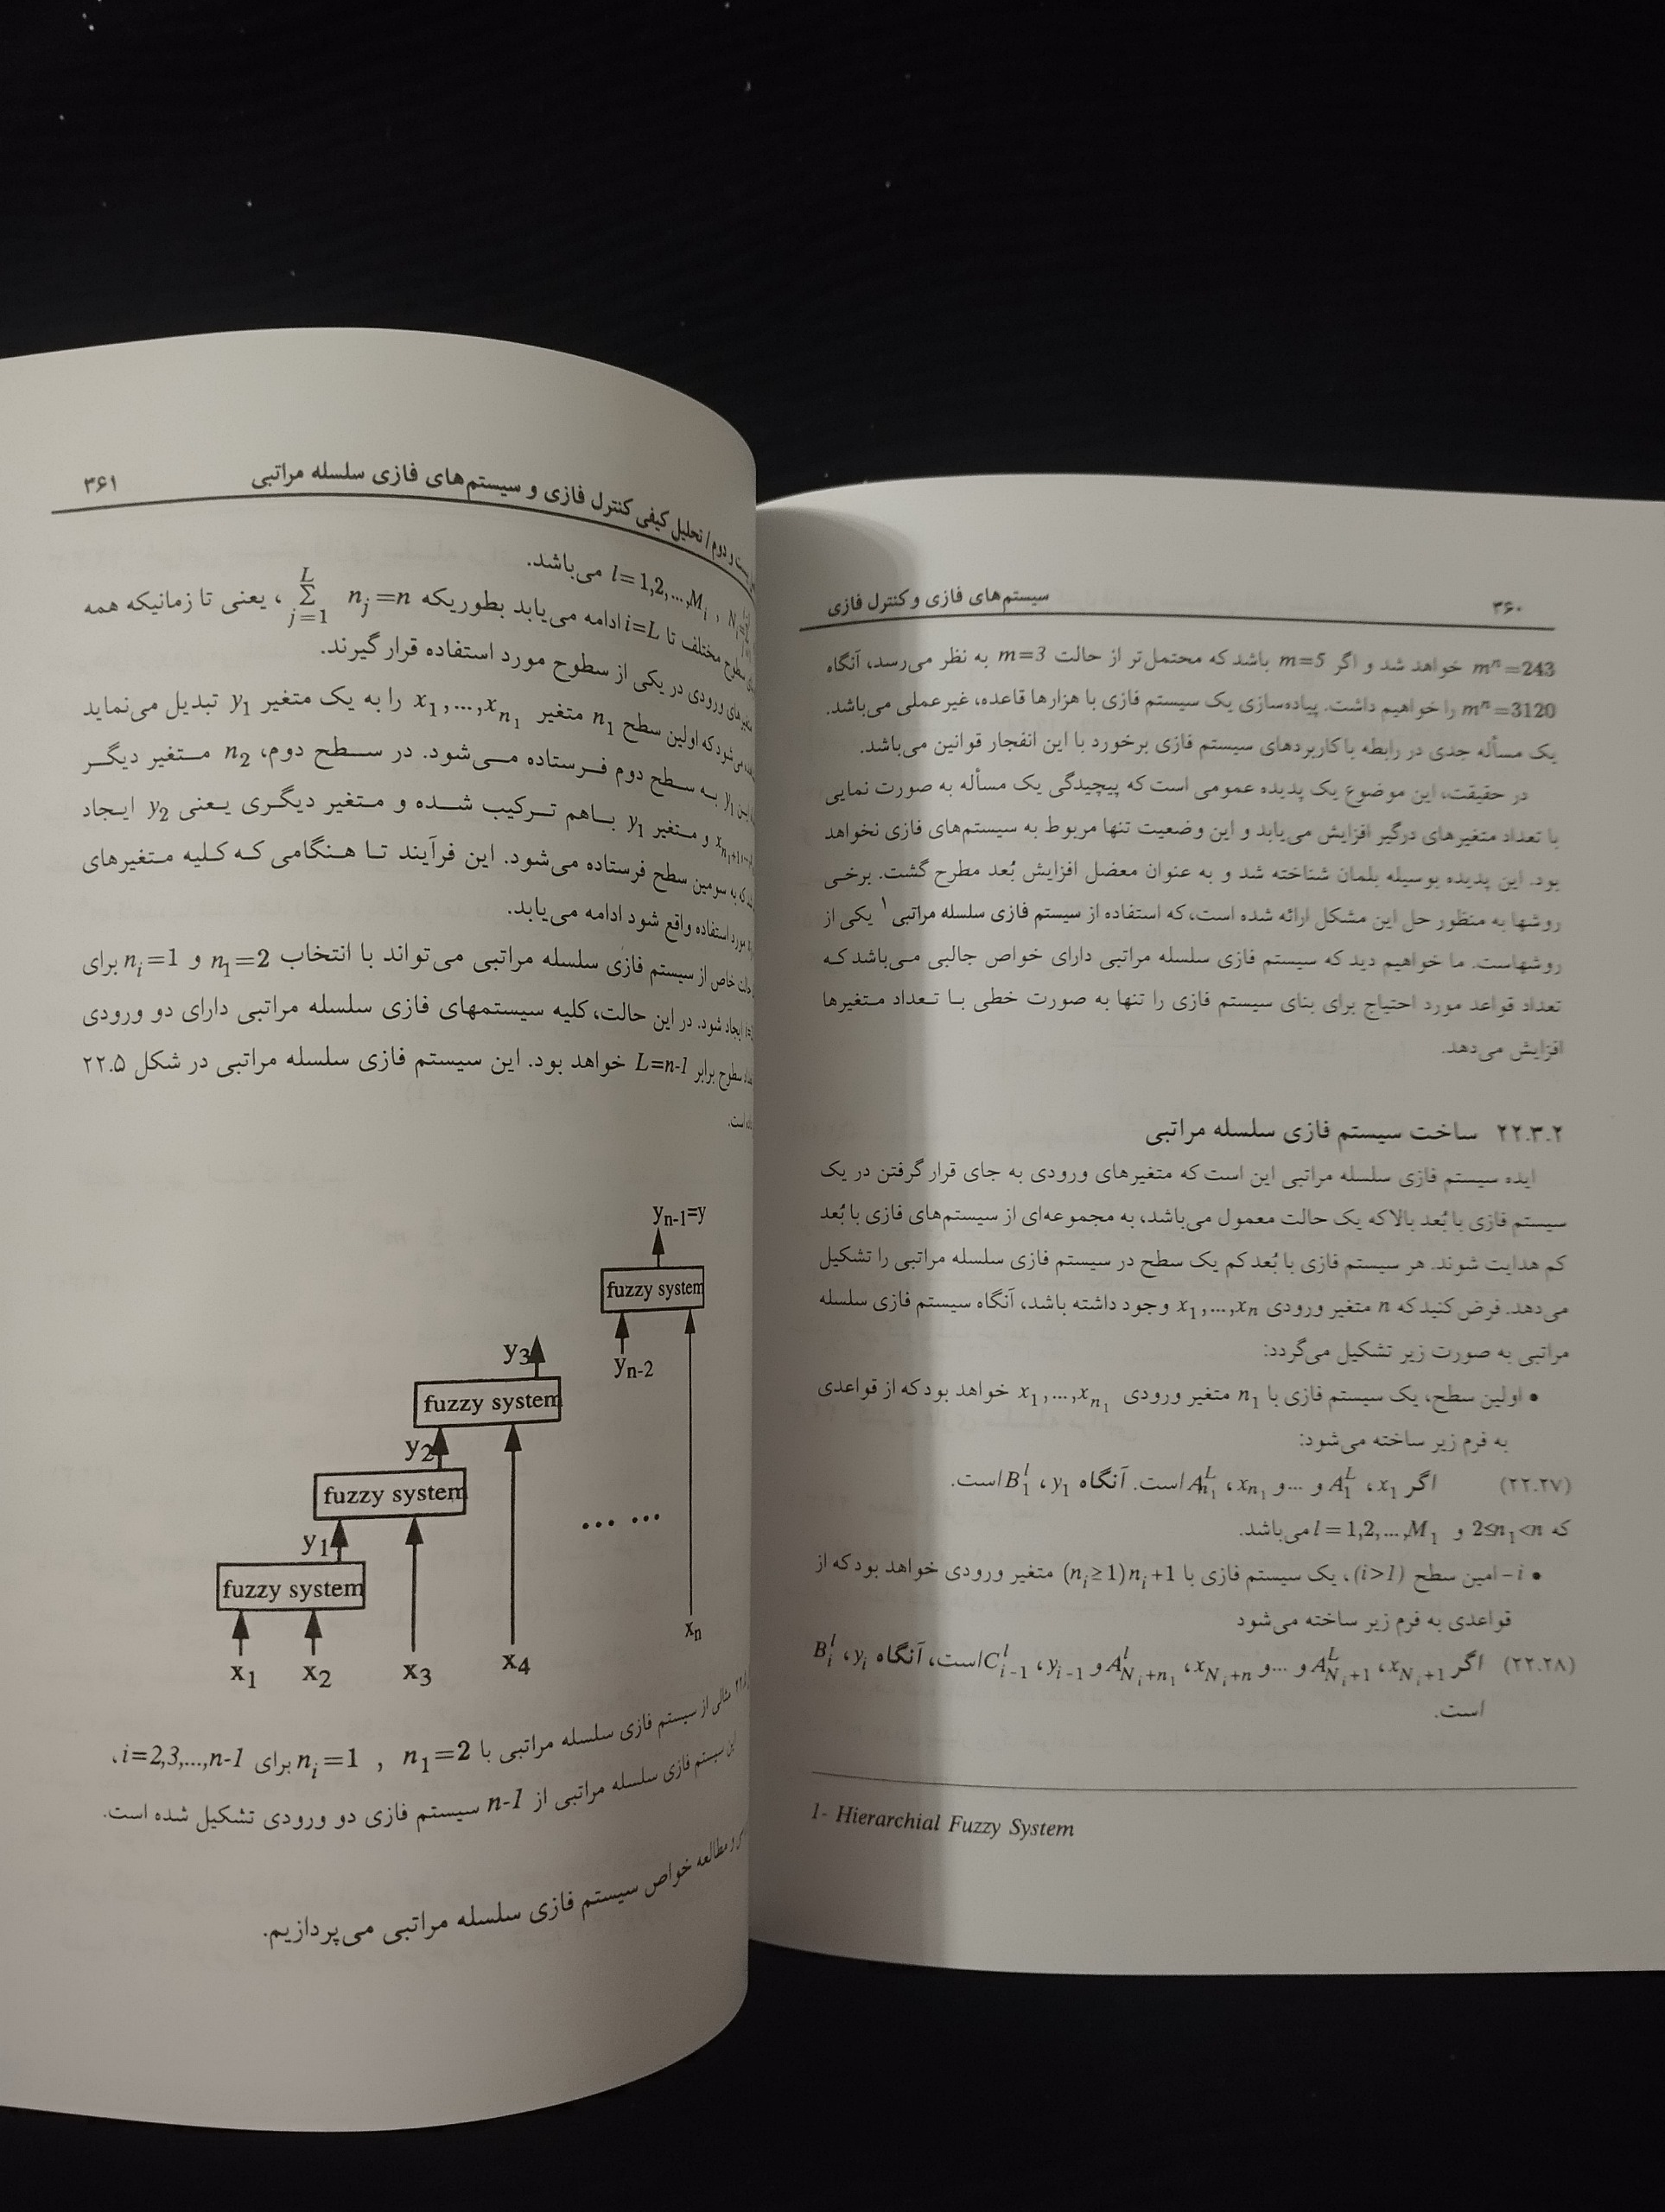 ۳۶۰ سیستم‌های فازی و کنترل فازی
mⁿ=243 خواهد شد و اگر m=5 باشد که محتمل‌تر از حالت m=3 به نظر می‌رسد، آنگاه
mⁿ=3120 را خواهیم داشت. پیاده‌سازی یک سیستم فازی با هزارها قاعده، غیرعملی می‌باشد.
یک مسأله جدی در رابطه با کاربردهای سیستم فازی برخورد با این انفجار قوانین می‌باشد.
در حقیقت، این موضوع یک پدیده عمومی است که پیچیدگی یک مسأله به صورت نمایی
با تعداد متغیرهای درگیر افزایش می‌یابد و این وضعیت تنها مربوط به سیستم‌های فازی نخواهد
بود. این پدیده بوسیله بلمان شناخته شد و به عنوان معضل افزایش بُعد مطرح گشت. برخی
روشها به منظور حل این مشکل ارائه شده است، که استفاده از سیستم فازی سلسله مراتبی ۱ یکی از
روشهاست. ما خواهیم دید که سیستم فازی سلسله مراتبی دارای خواص جالبی می‌باشد که
تعداد قواعد مورد احتیاج برای بنای سیستم فازی را تنها به صورت خطی با تعداد متغیرها
افزایش می‌دهد.
۲۲.۳.۲ ساخت سیستم فازی سلسله مراتبی
ایده سیستم فازی سلسله مراتبی این است که متغیرهای ورودی به جای قرار گرفتن در یک
سیستم فازی با بُعد بالا که یک حالت معمول می‌باشد، به مجموعه‌ای از سیستم‌های فازی با بُعد
کم هدایت شوند. هر سیستم فازی با بُعد کم یک سطح در سیستم فازی سلسله مراتبی را تشکیل
می‌دهد. فرض کنید که n متغیر ورودی x₁,...,xₙ وجود داشته باشد، آنگاه سیستم فازی سلسله
مراتبی به صورت زیر تشکیل می‌گردد:
• اولین سطح، یک سیستم فازی با n₁ متغیر ورودی x₁,...,x_{n₁} خواهد بود که از قواعدی
به فرم زیر ساخته می‌شود:
(۲۲.۲۷) اگر x₁، A₁^L و ... و x_{n₁}، A_{n₁}^L است. آنگاه y₁، B₁^l است.
که 2≤n₁<n و l = 1,2,...,M₁ می‌باشد.
• i – امین سطح (i>1)، یک سیستم فازی با n_i+1 (n_i≥1) متغیر ورودی خواهد بود که از
قواعدی به فرم زیر ساخته می‌شود
(۲۲.۲۸) اگر x_{N_i+1}، A_{N_i+1}^L و ... و x_{N_i+n}، A_{N_i+n_1}^l و y_{i-1}، C_{i-1}^l است، آنگاه y_i، B_i^l
است.
1- Hierarchial Fuzzy System
و دوم / تحلیل کیفی کنترل فازی و سیستم‌های فازی سلسله مراتبی ۳۶۱
l = 1,2,...,M_i , می‌باشد.
سطوح مختلف تا i=L ادامه می‌یابد بطوریکه \sum_{j=1}^{L} n_j = n ، یعنی تا زمانیکه همه
ورودی در یکی از سطوح مورد استفاده قرار گیرند.
که اولین سطح n₁ متغیر x₁,...,x_{n₁} را به یک متغیر y₁ تبدیل می‌نماید
y₁ به سطح دوم فرستاده می‌شود. در سطح دوم، n₂ متغیر دیگر
و متغیر y₁ باهم ترکیب شده و متغیر دیگری یعنی y₂ ایجاد
که به سومین سطح فرستاده می‌شود. این فرآیند تا هنگامی که کلیه متغیرهای
مورد استفاده واقع شود ادامه می‌یابد.
حالت خاص از سیستم فازی سلسله مراتبی می‌تواند با انتخاب n₁=2 و n_i=1 برای
ایجاد شود. در این حالت، کلیه سیستمهای فازی سلسله مراتبی دارای دو ورودی
سطوح برابر L=n-1 خواهد بود. این سیستم فازی سلسله مراتبی در شکل ۲۲.۵
است.
yn-1=y
fuzzy system
yn-2
y3
fuzzy system
y2
fuzzy system
... ...
y1
fuzzy system
x1 x2 x3 x4 xn
مثالی از سیستم فازی سلسله مراتبی با n₁=2 , n_i=1 برای i=2,3,...,n-1،
این سیستم فازی سلسله مراتبی از n-1 سیستم فازی دو ورودی تشکیل شده است.
و مطالعه خواص سیستم فازی سلسله مراتبی می‌پردازیم.